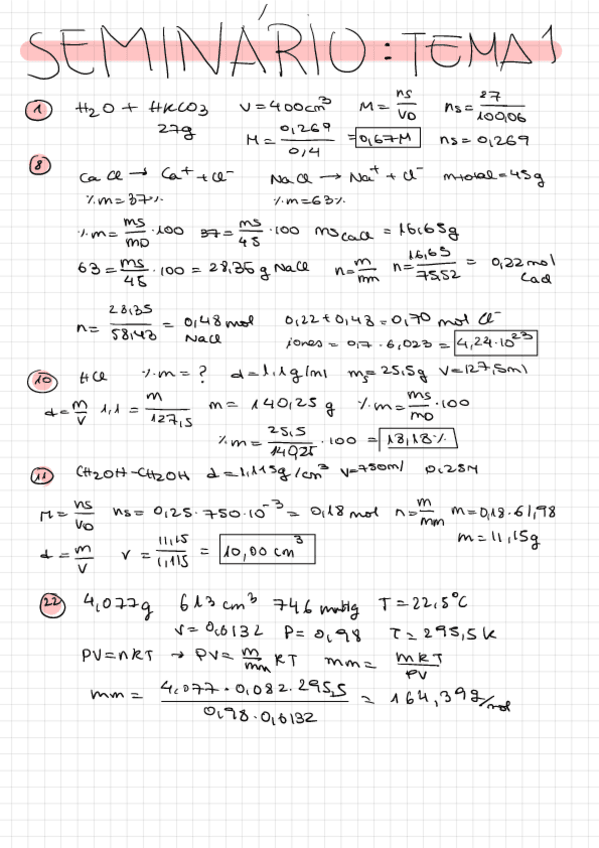 SEMINÁRIO: TEMA 1
1 H2O + HKCO3 V=400cm³ M = ns/VD ns = 27/100,06
27g M = 0,269/0,4 = 0,67M ns = 0,269
8 CaCl → Ca⁺ + Cl⁻ NaCl → Na⁺ + Cl⁻ mtotal = 45g
%m = 37% %m = 63%
%m = ms/mD · 100 37 = ms/45 · 100 ms CaCl = 16,65g
63 = ms/45 · 100 = 28,35 g NaCl n = m/mm n = 16,65/75,52 = 0,22 mol CaCl
n = 28,35/58,43 = 0,48 mol NaCl 0,22 + 0,48 = 0,70 mol Cl⁻
iones = 0,7 · 6,023 = 4,24·10²³
10 HCl %m = ? d = 1,1 g/ml ms = 25,5g V = 127,5ml
d = m/V 1,1 = m/127,5 m = 140,25 g %m = ms/mD · 100
%m = 25,5/140,25 · 100 = 18,18%
11 CH2OH-CH2OH d = 1,115g/cm³ V=750ml 0,25M
M = ns/VD ns = 0,25 · 750·10⁻³ = 0,18 mol n = m/mm m = 0,18·61,98
m = 11,15g
d = m/V V = 11,15/1,115 = 10,00 cm³
22 4,077g 613 cm³ 746 mmHg T = 22,5°C
V = 0,6132 P = 0,98 T = 295,5 K
PV = nRT → PV = m/mm RT mm = mRT/PV
mm = 4,077 · 0,082 · 295,5/0,98 · 0,6132 = 164,39 g/mol